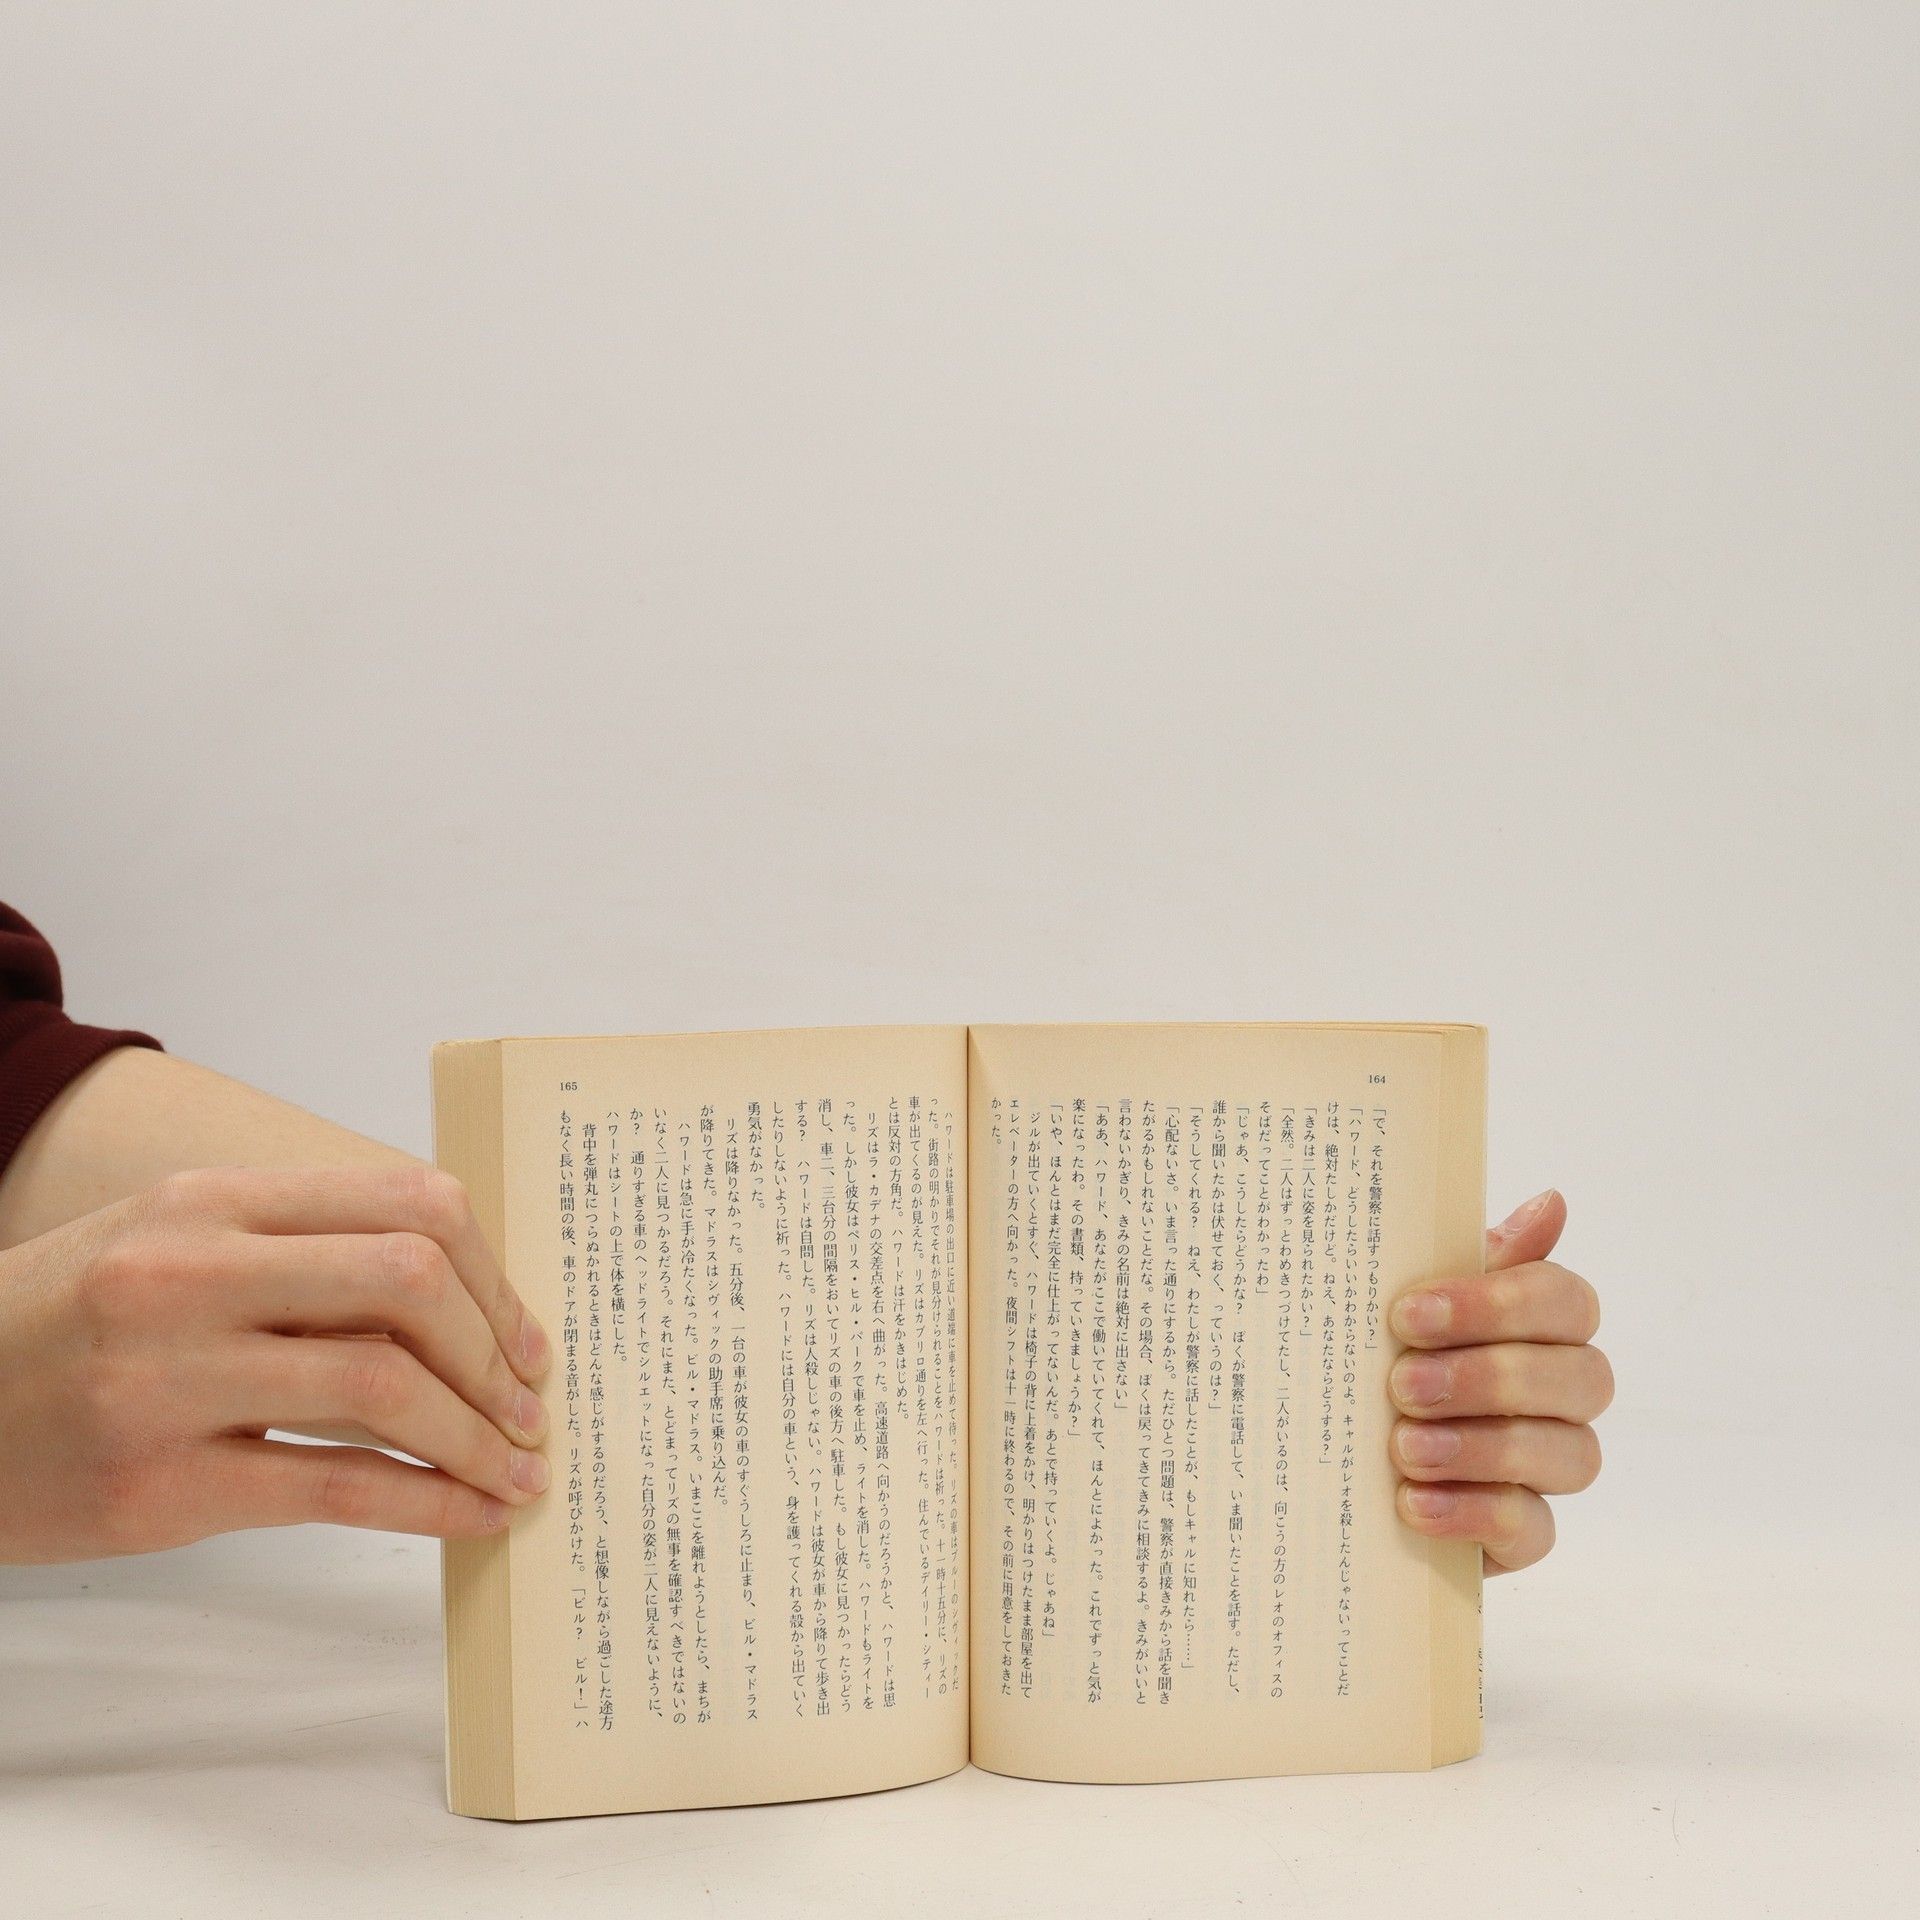 164
「で、それを警察に話すつもりかい？」
「ハワード、どうしたらいいかわからないのよ。キャルがレオを殺したんじゃないってことだ
けは、絶対たしかだけど。ねえ、あなたならどうする？」
「きみは二人に姿を見られたかい？」
「全然。二人はずっとわめきつづけてたし、二人がいるのは、向こうの方のレオのオフィスの
そばだってことがわかったわ」
「じゃあ、こうしたらどうかな？　ぼくが警察に電話して、いま聞いたことを話す。ただし、
誰から聞いたかは伏せておく、っていうのは？」
「そうしてくれる？　ねえ、わたしが警察に話したことが、もしキャルに知れたら……」
「心配ないさ。いま言った通りにするから。ただひとつ問題は、警察が直接きみから話を聞き
たがるかもしれないことだな。その場合、ぼくは戻ってきてきみに相談するよ。きみがいいと
言わないかぎり、きみの名前は絶対に出さない」
「ああ、ハワード、あなたがここで働いていてくれて、ほんとによかった。これでずっと気が
楽になったわ。その書類、持っていきましょうか？」
「いや、ほんとはまだ完全に仕上がってないんだ。あとで持っていくよ。じゃあね」
ジルが出ていくとすぐ、ハワードは椅子の背に上着をかけ、明かりはつけたまま部屋を出て
エレベーターの方へ向かった。夜間シフトは十一時に終わるので、その前に用意をしておきた
かった。
165
ハワードは駐車場の出口に近い道端に車を止めて待った。リズの車はブルーのシヴィックだ
った。街路の明かりでそれが見分けられることをハワードは祈った。十一時十五分に、リズの
車が出てくるのが見えた。リズはカブリロ通りを左へ行った。住んでいるデイリー・シティー
とは反対の方角だ。ハワードは汗をかきはじめた。
リズはラ・カデナの交差点を右へ曲がった。高速道路へ向かうのだろうかと、ハワードは思
った。しかし彼女はペリス・ヒル・パークで車を止め、ライトを消した。ハワードもライトを
消し、車二、三台分の間隔をおいてリズの車の後方へ駐車した。もし彼女に見つかったらどう
する？　ハワードは自問した。リズは人殺しじゃない。ハワードは彼女が車から降りて歩き出
したりしないように祈った。ハワードには自分の車という、身を護ってくれる殻から出ていく
勇気がなかった。
リズは降りなかった。五分後、一台の車が彼女の車のすぐうしろに止まり、ビル・マドラス
が降りてきた。マドラスはシヴィックの助手席に乗り込んだ。
ハワードは急に手が冷たくなった。ビル・マドラス。いまここを離れようとしたら、まちが
いなく二人に見つかるだろう。それにまた、とどまってリズの無事を確認すべきではないの
か？　通りすぎる車のヘッドライトでシルエットになった自分の姿が二人に見えないように、
ハワードはシートの上で体を横にした。
背中を弾丸につらぬかれるときはどんな感じがするのだろう、と想像しながら過ごした途方
もなく長い時間の後、車のドアが閉まる音がした。リズが呼びかけた。「ビル？　ビル！」ハ